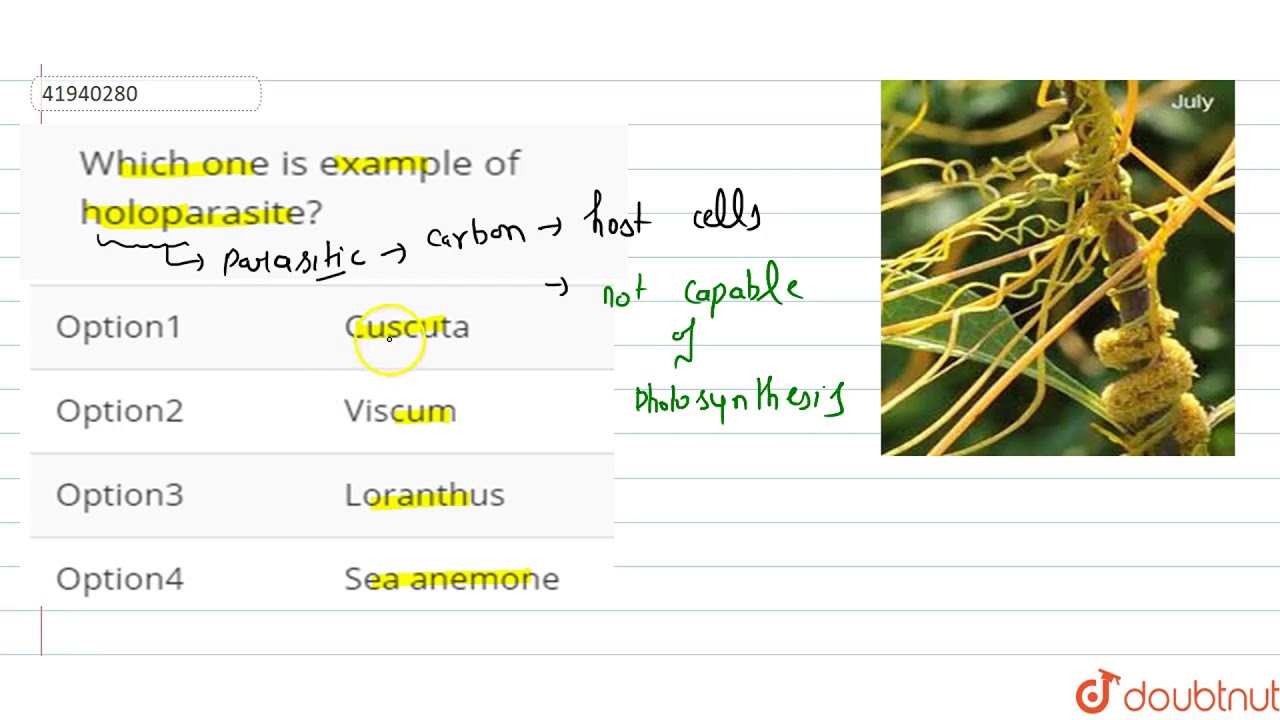 41940280
July
Which one is example of
holoparasite?
Parasitic → carbon → host cells
→ not capable
of
photosynthesis
Option1 Cuscuta
Option2 Viscum
Option3 Loranthus
Option4 Sea anemone
doubtnut